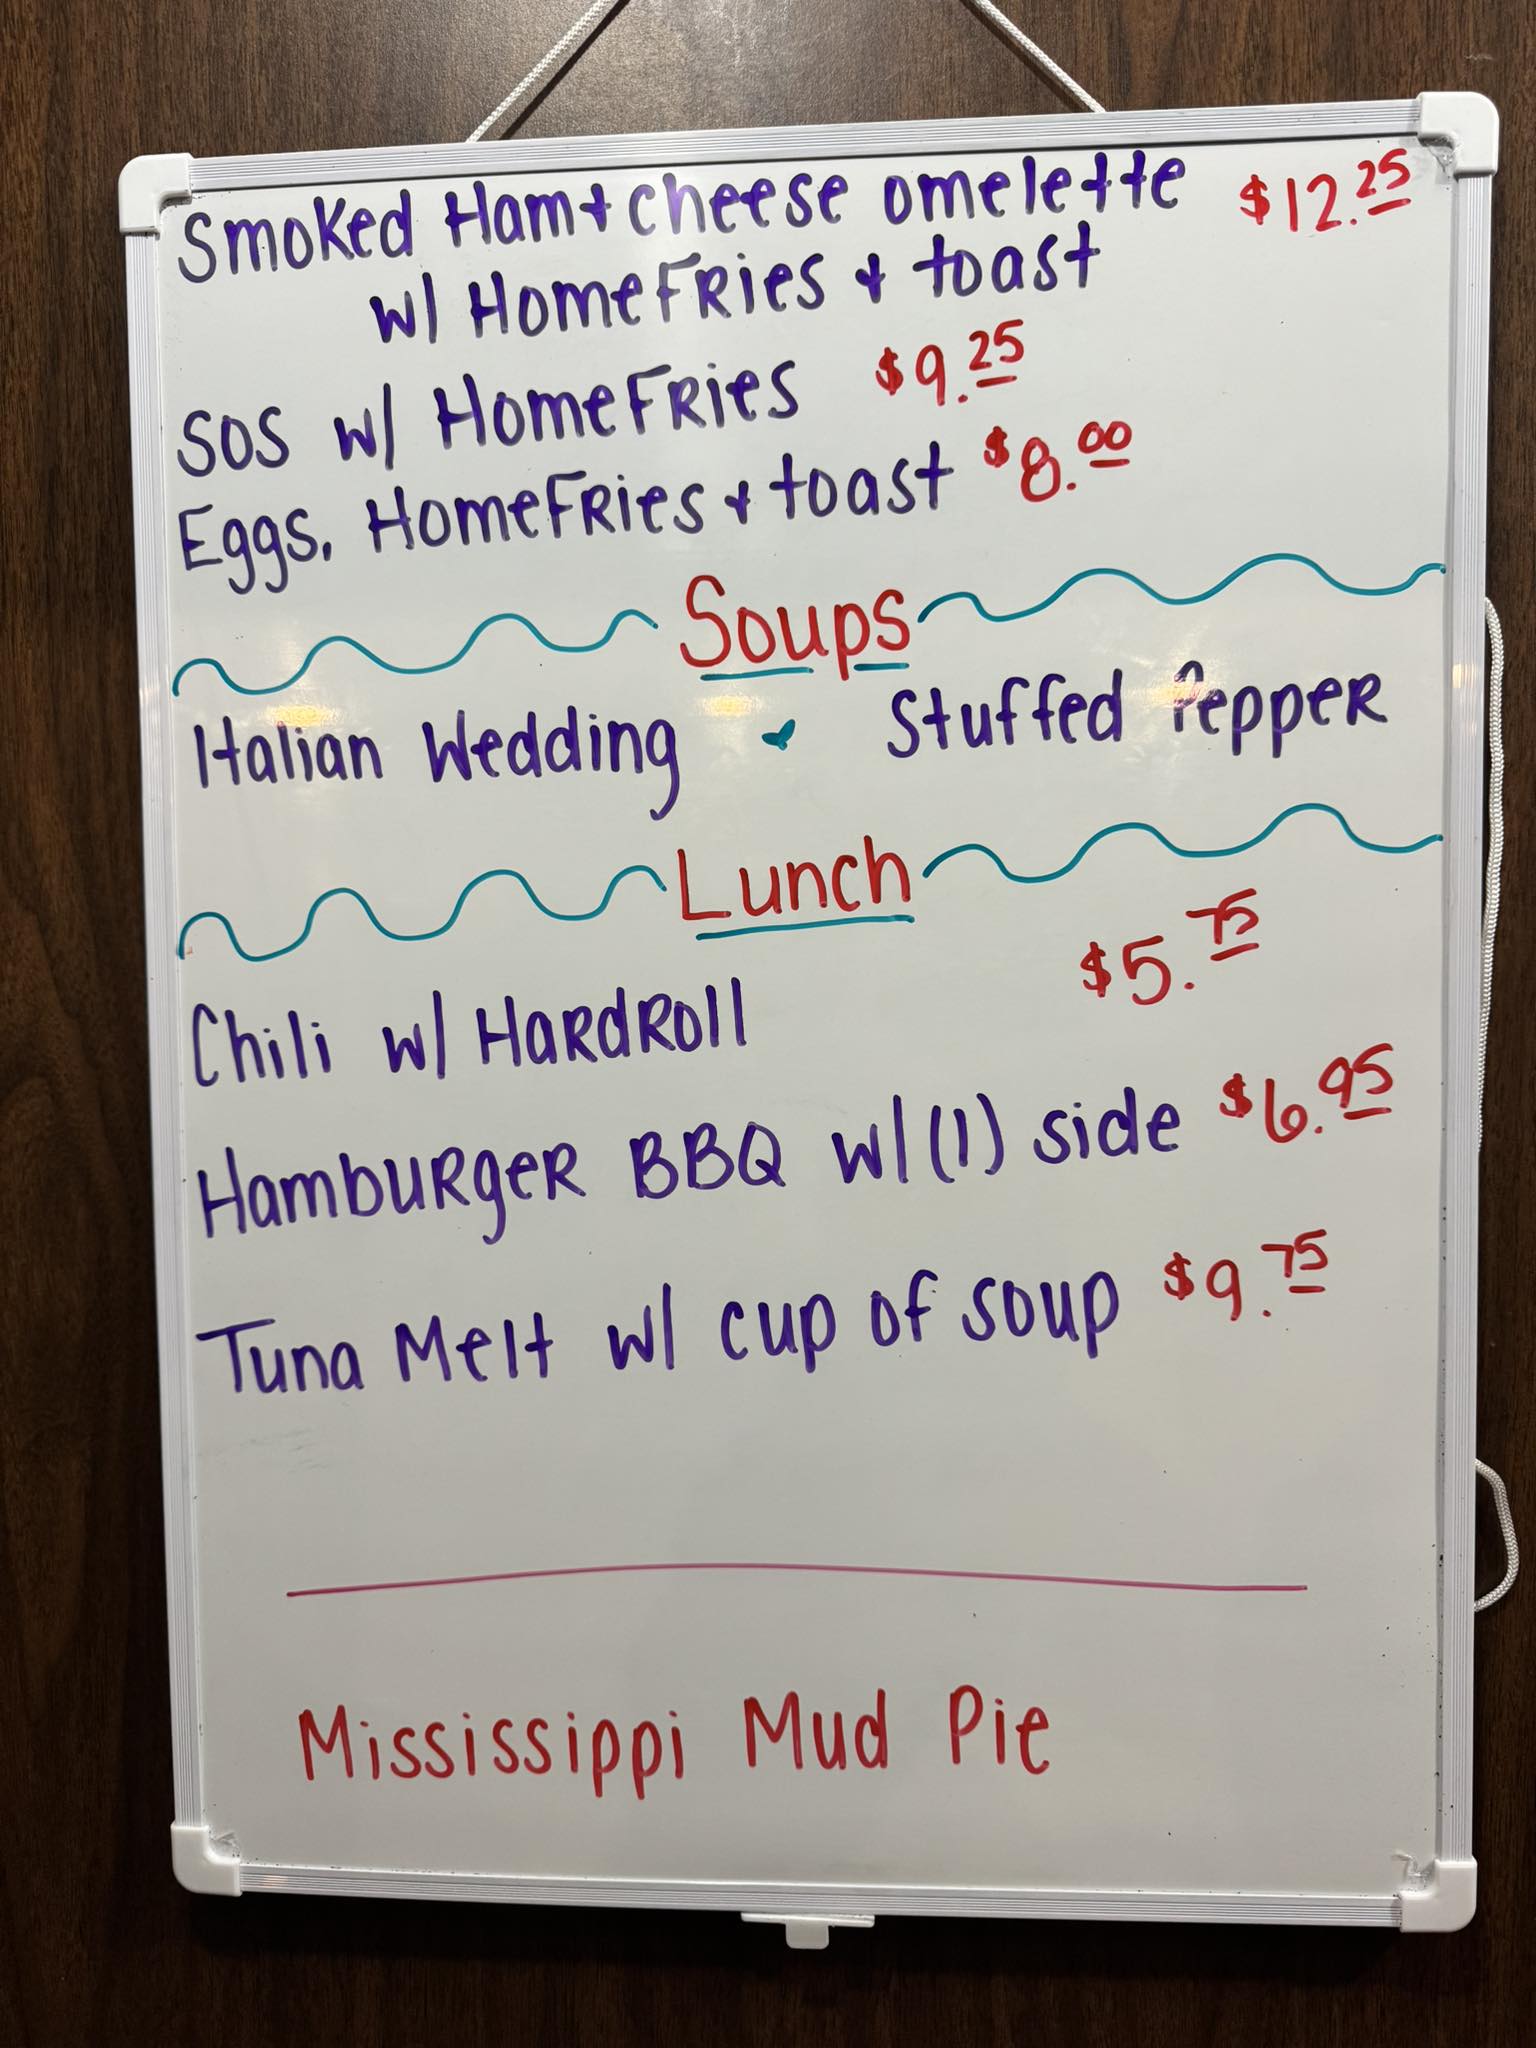 Smoked Ham + cheese omelette $12.25
w/ HomeFries + toast
SOS w/ HomeFries $9.25
Eggs, HomeFries + toast $8.00
Soups
Italian Wedding Stuffed Pepper
Lunch
$5.75
Chili w/ HardRoll
Hamburger BBQ w/ (1) side $6.95
Tuna Melt w/ cup of soup $9.75
Mississippi Mud Pie